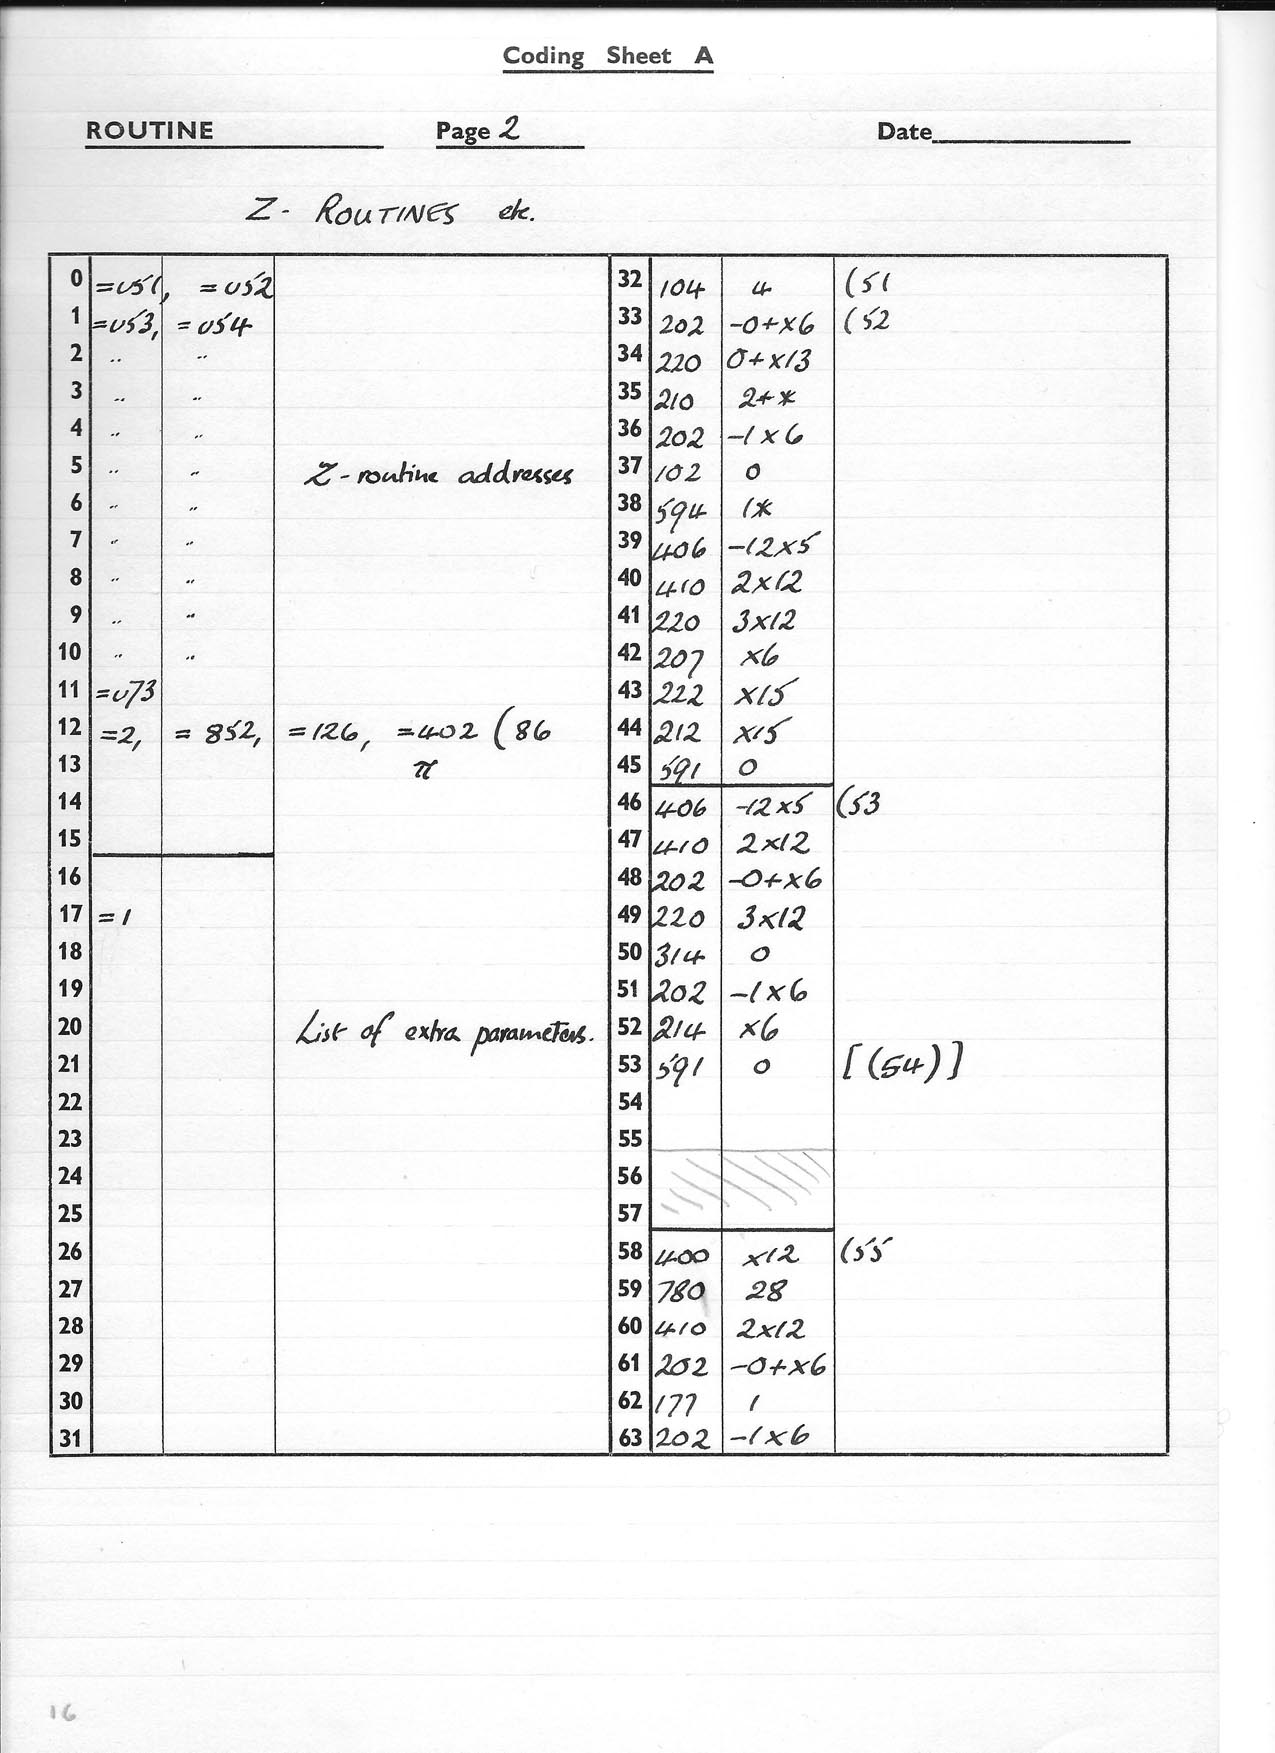 Coding Sheet A
ROUTINE Page 2 Date
Z - ROUTINES etc.
0 =v51, =v52
1 =v53, =v54
2 " "
3 " "
4 " "
5 " " Z-routine addresses
6 " "
7 " "
8 " "
9 " "
10 " "
11 =v73
12 =2, = 852, =126, =402 (86
13 π
14
15
16
17 =1
18
19
20 List of extra parameters.
21
22
23
24
25
26
27
28
29
30
31
32 104 4 (51
33 202 -0+x6 (52
34 220 0+x13
35 210 2+*
36 202 -1x6
37 102 0
38 594 1*
39 406 -12x5
40 410 2x12
41 220 3x12
42 207 x6
43 222 x15
44 212 x15
45 591 0
46 406 -12x5 (53
47 410 2x12
48 202 -0+x6
49 220 3x12
50 314 0
51 202 -1x6
52 214 x6
53 591 0 [(54)]
54
55
56
57
58 400 x12 (55
59 780 28
60 410 2x12
61 202 -0+x6
62 177 1
63 202 -1x6
16